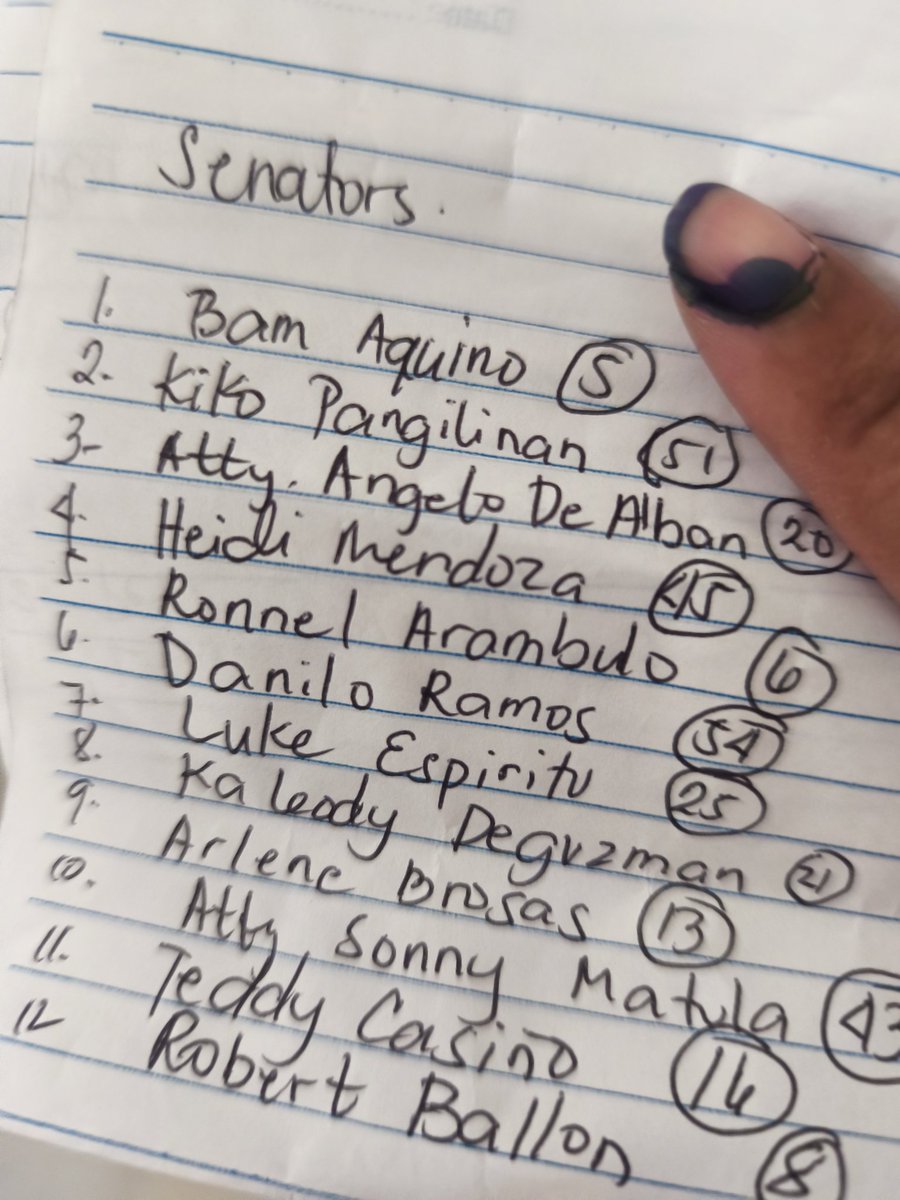 Senators.
1. Bam Aquino 5
2. Kiko Pangilinan 51
3- Atty. Angelo De Alban 20
4. Heidi Mendoza 45
5. Ronnel Arambulo 6
6. Danilo Ramos 54
7. Luke Espiritu 25
8. Ka Leody Deguzman 21
9. Arlene Brosas 13
10. Atty Sonny Matula 43
11. Teddy Casiño 16
12 Robert Ballon 8